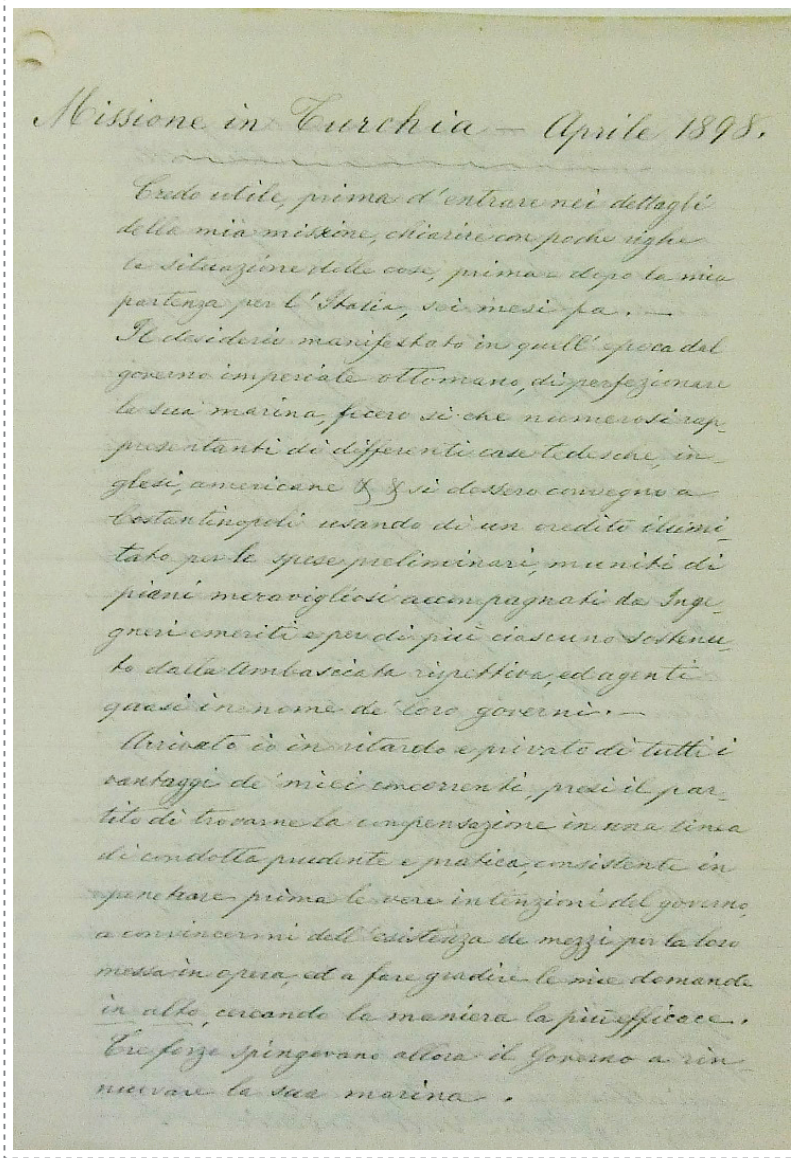 Missione in Turchia — Aprile 1898.
Credo utile, prima d'entrare nei dettagli
della mia missione, chiarire con poche righe
la situazione delle cose, prima e dopo la mia
partenza per l'Italia, sei mesi fa. —
Il desiderio manifestato in quell'epoca dal
governo imperiale ottomano, di perfezionare
la sua marina, fecero si che numerosi rap-
presentanti di differenti case tedesche, in-
glesi, americane & & si dessero convegno a
Costantinopoli usando di un credito illimi-
tato per le spese preliminari, muniti di
piani meravigliosi accompagnati da Inge-
gneri emeriti e per di più ciascuno sostenu-
to dalla Ambasciata rispettiva, ed agenti
quasi in nome de' loro governi. —
Arrivato io in ritardo e privato di tutti i
vantaggi de' miei concorrenti, presi il par-
tito di trovarne la compensazione in una linea
di condotta prudente e pratica, consistente in
penetrare prima le vere intenzioni del governo,
a convincermi dell'esistenza de mezzi per la loro
messa in opera, ed a fare gradire le mie domande
in alto, cercando la maniera la più efficace.
Tre forze spingevano allora il Governo a rin-
nuovare la sua marina.